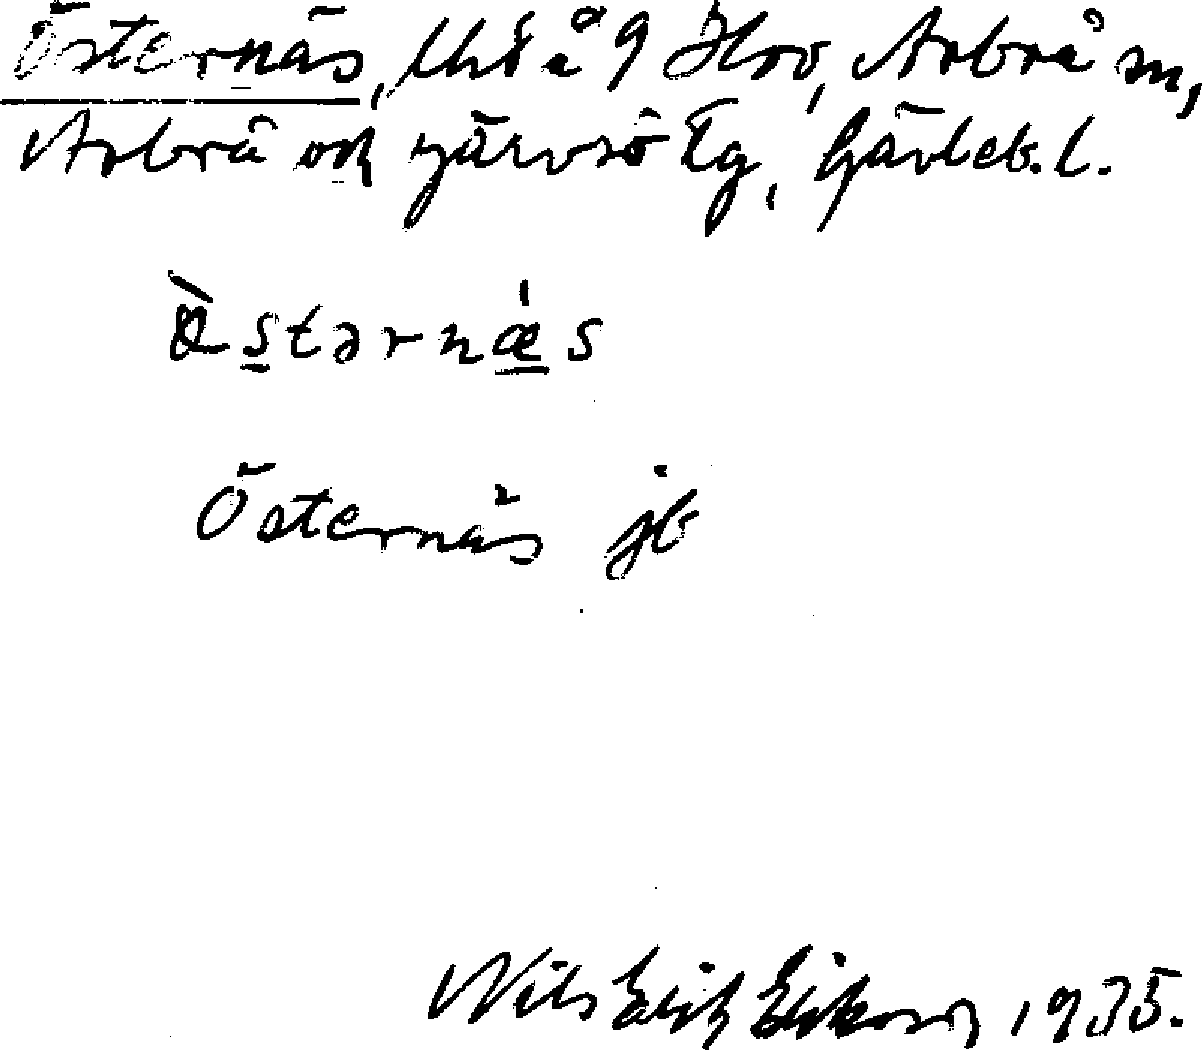 Östernäs, lht å 9 Hov, Arbrå sn,
Arbrå och Järvsö tg, Gävleb. l.
Östernäs
Östernäs jb
Nils Erik Erikson 1935.